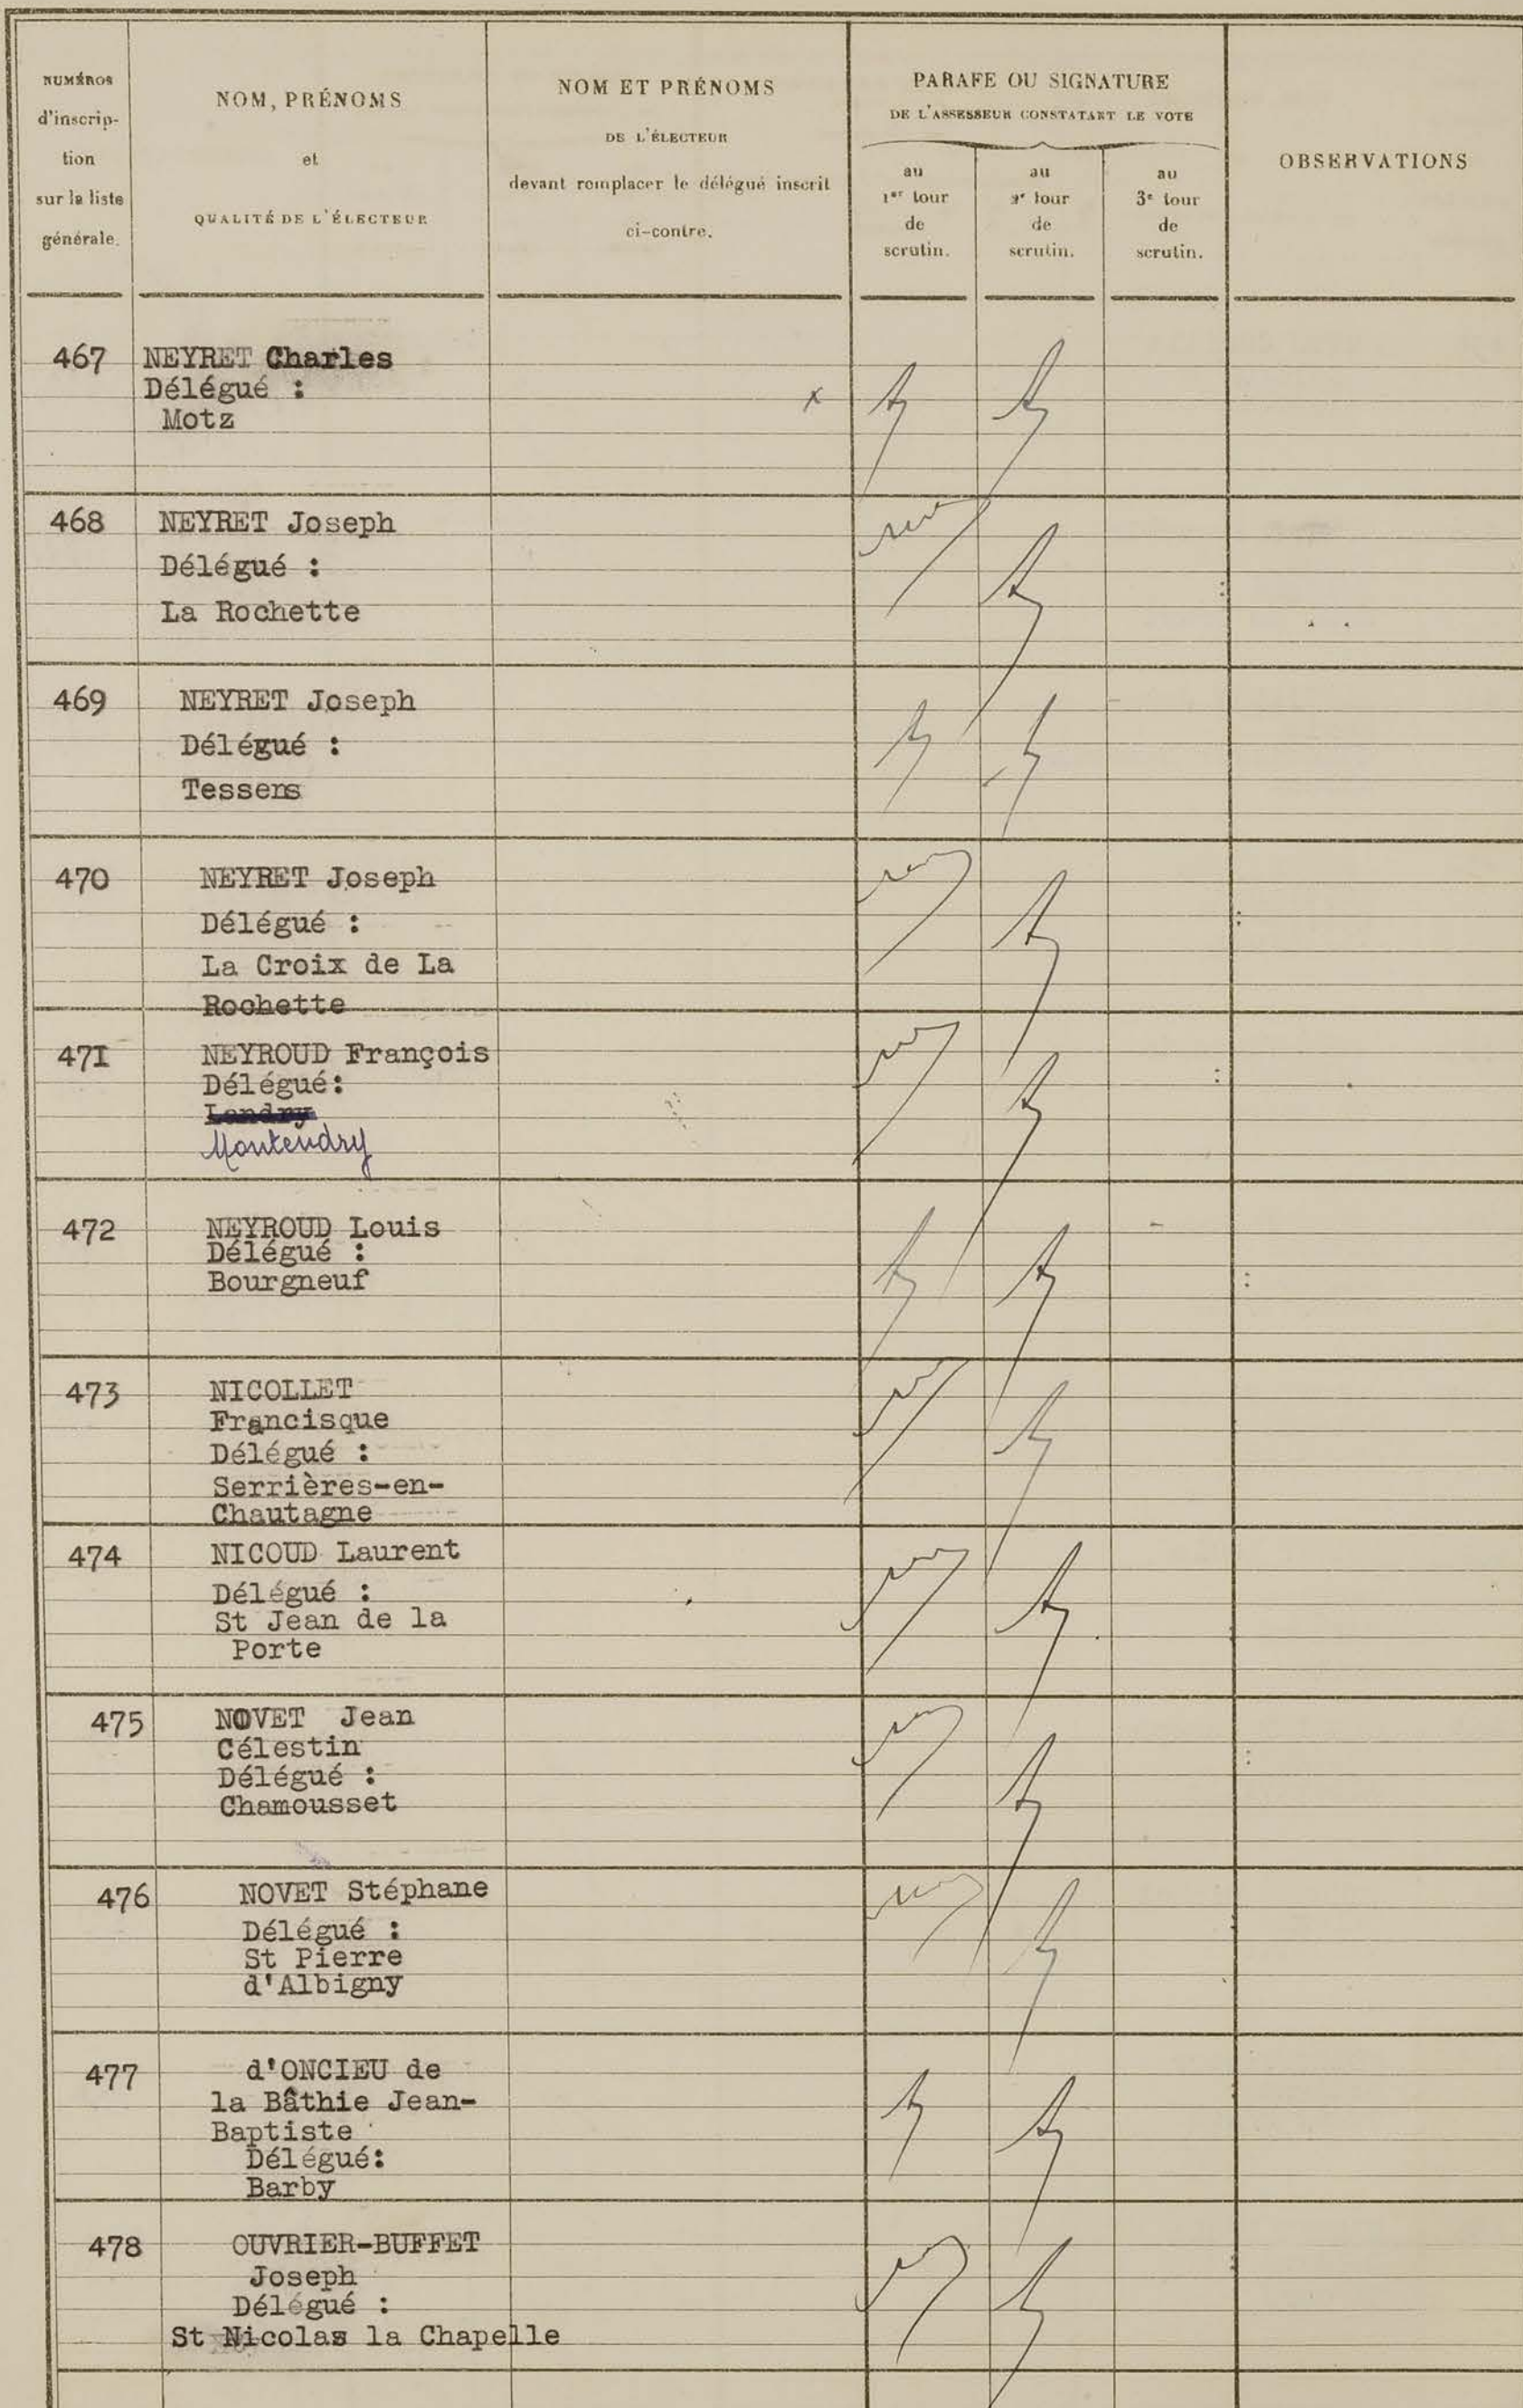 NUMÉROS
d'inscrip-
tion
sur la liste
générale.
NOM, PRÉNOMS
et
QUALITÉ DE L'ÉLECTEUR
NOM ET PRÉNOMS
DE L'ÉLECTEUR
devant remplacer le délégué inscrit
ci-contre.
PARAFE OU SIGNATURE
DE L'ASSESSEUR CONSTATANT LE VOTE
au
1er tour
de
scrutin.
au
2e tour
de
scrutin.
au
3e tour
de
scrutin.
OBSERVATIONS
467 NEYRET Charles
Délégué :
Motz
x
468 NEYRET Joseph
Délégué :
La Rochette
469 NEYRET Joseph
Délégué :
Tessens
470 NEYRET Joseph
Délégué :
La Croix de La
Rochette
471 NEYROUD François
Délégué:
Landry
Montendry
472 NEYROUD Louis
Délégué :
Bourgneuf
473 NICOLLET
Francisque
Délégué :
Serrières-en-
Chautagne
474 NICOUD Laurent
Délégué :
St Jean de la
Porte
475 NOVET Jean
Célestin
Délégué :
Chamousset
476 NOVET Stéphane
Délégué :
St Pierre
d'Albigny
477 d'ONCIEU de
la Bâthie Jean-
Baptiste
Délégué:
Barby
478 OUVRIER-BUFFET
Joseph
Délégué :
St Nicolas la Chapelle